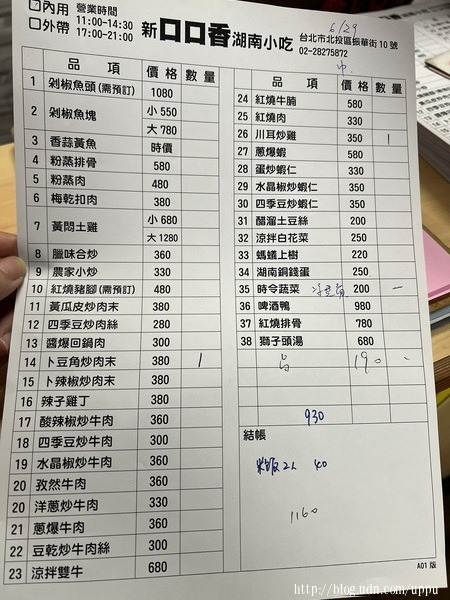 □內用 營業時間
□外帶 11:00-14:30
17:00-21:00
新口口香湖南小吃
6/29
台北市北投區振華街10號
02-28275872
中.
品 項 價格 數量
1 剁椒魚頭(需預訂) 1080
2 剁椒魚塊 小 550
大 780
3 香蒜黃魚 時價
4 粉蒸排骨 580
5 粉蒸肉 480
6 梅乾扣肉 380
7 黃悶土雞 小 680
大 1280
8 臘味合炒 360
9 農家小炒 330
10 紅燒豬腳(需預訂) 480
11 黃瓜皮炒肉末 380
12 四季豆炒肉絲 280
13 醬爆回鍋肉 300
14 卜豆角炒肉末 380 1
15 卜辣椒炒肉末 380
16 辣子雞丁 380
17 酸辣椒炒牛肉 360
18 四季豆炒牛肉 300
19 水晶椒炒牛肉 360
20 孜然牛肉 360
20 洋蔥炒牛肉 330
21 蔥爆牛肉 360
22 豆乾炒牛肉絲 300
23 涼拌雙牛 680
品 項 價格 數量
24 紅燒牛腩 580
25 紅燒肉 330
26 川耳炒雞 350 1
27 蔥爆蝦 580
28 蛋炒蝦仁 330
29 水晶椒炒蝦仁 350
30 四季豆炒蝦仁 350
31 醋溜土豆絲 200
32 涼拌白花菜 250
33 螞蟻上樹 220
34 湖南銅錢蛋 250
35 時令蔬菜 200 一
36 啤酒鴨 980
37 紅燒排骨 780
38 獅子頭湯 680
190
930
結帳
2人 40
1160
A01 版
http://blog.udn.com/uppu